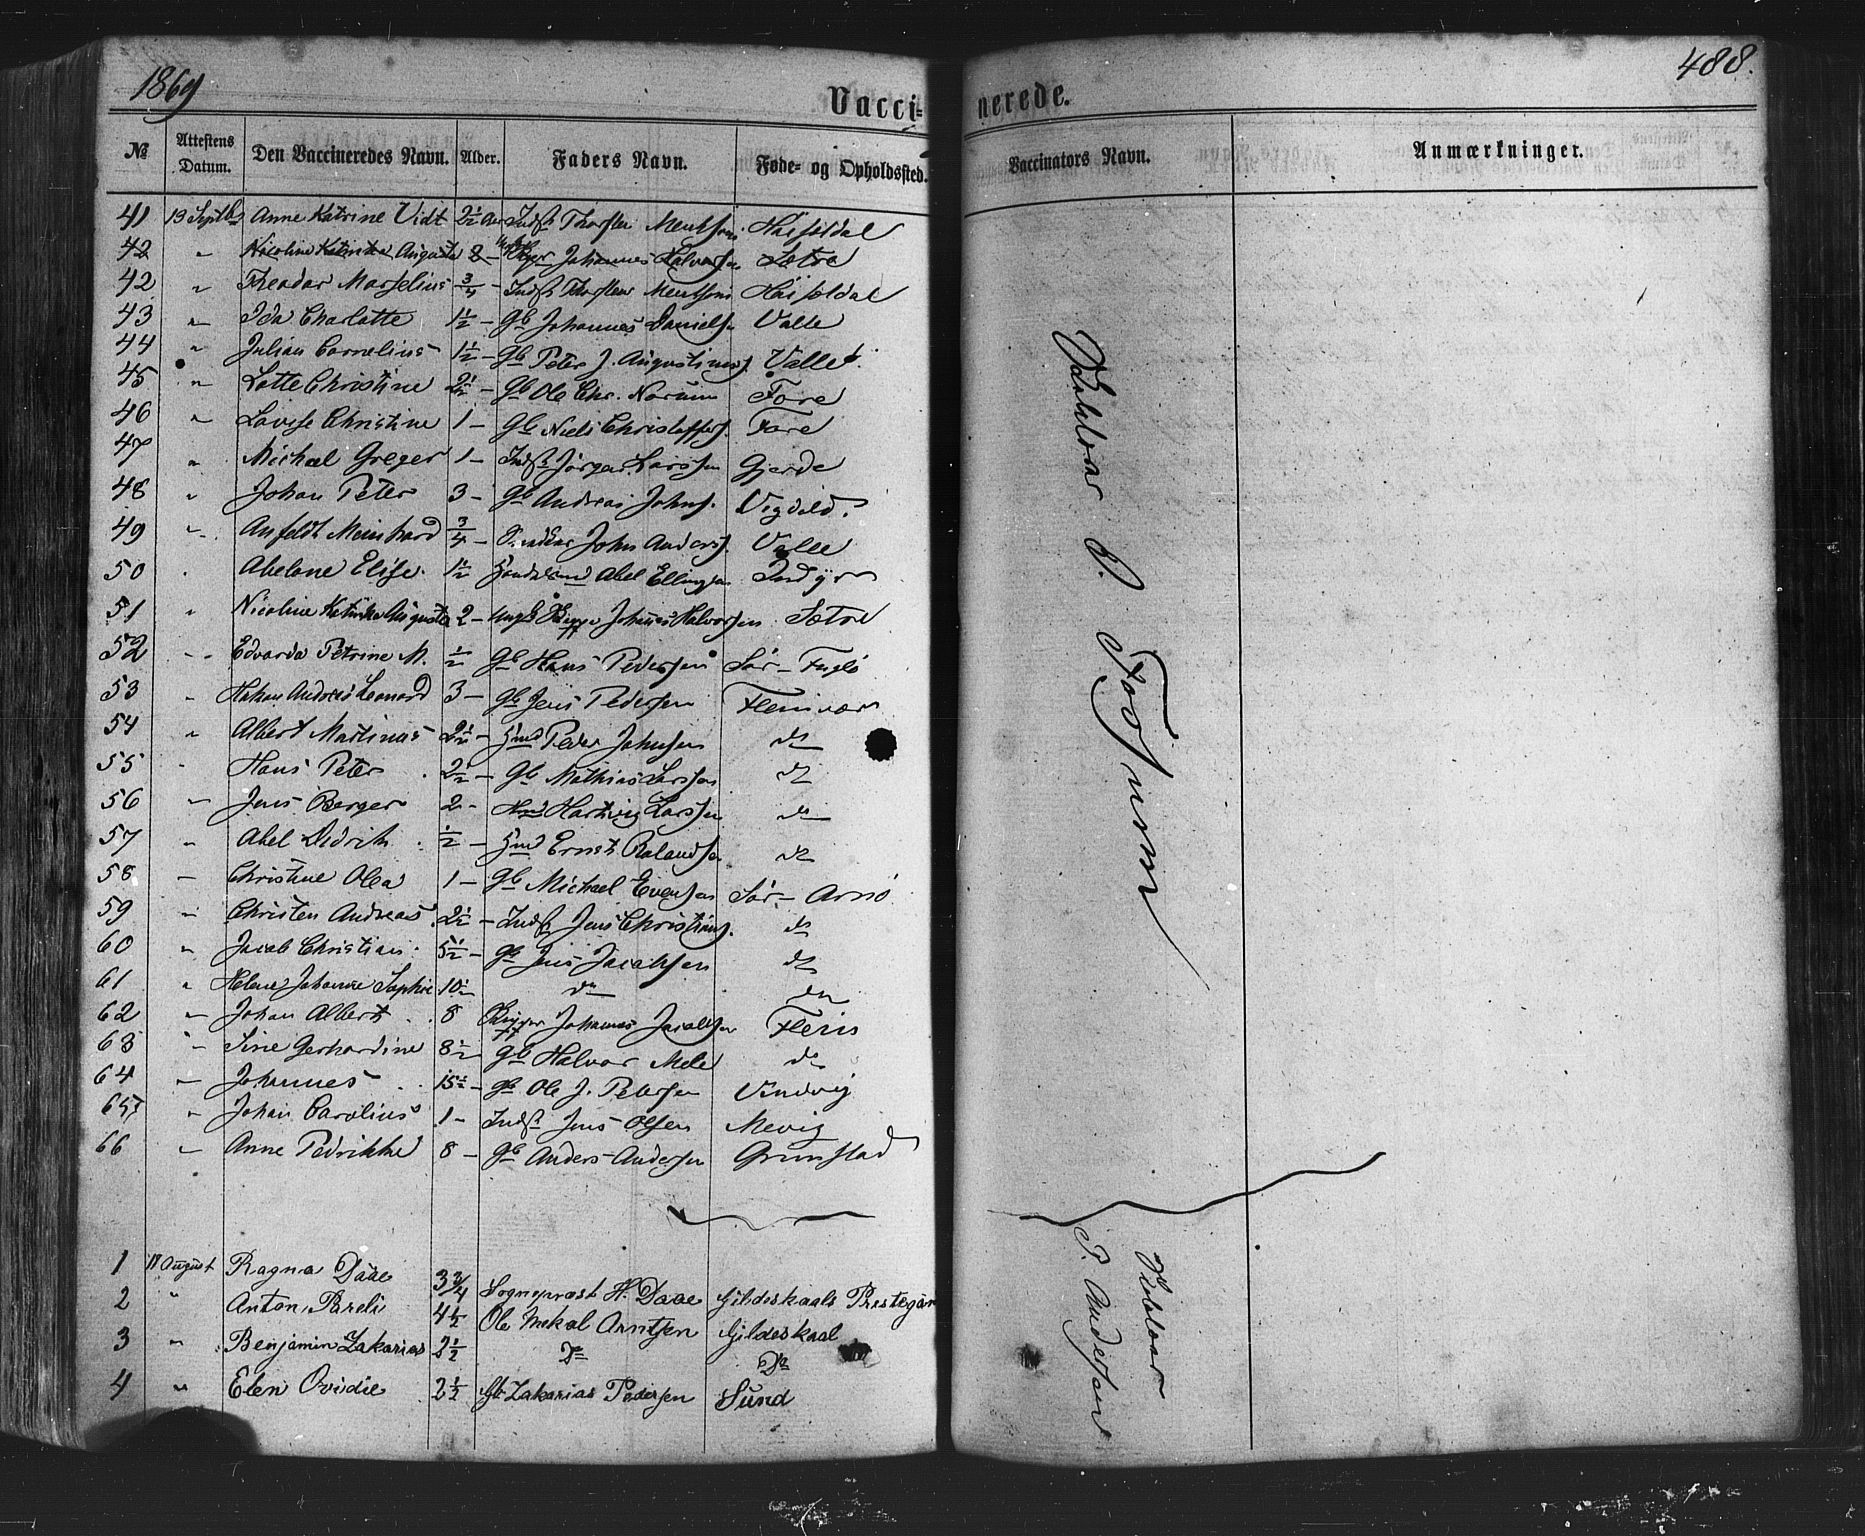 1869
488.
Vaccinerede.
№ Attestens Datum. Den Vaccineredes Navn. Alder. Faders Navn. Føde- og Opholdssted. Vaccinators Navn. Anmærkninger.
41 13 Septb Anne Katrine Vidt 2½ Aar Indst Thorsten Mentsen
42 " Nicoline Katinka Augusta 8 - Johannes Halvorsen Sætre
42 " Theodor Marselius ¾ - Indst Thorsten Mentsen
43 " Ida Charlotte 1½ - Gb Johannes Danielsen Valle
44 " Julian Cornelius 1½ - Gb Peter J. Augustinuss. Valle
45 " Lotte Christine 2½ - Gb Ole Chr. Norum Fore
46 " Lovise Christine 1 - Gb Niels Christoffers. Fore
47 " Michael Greger 1 - Indst Jørgen Larssen Gjerde
48 " Johan Peter 3 - Gb Andreas Johns.
49 " Anfeldt Meinhard ¾ - John Anders. Valle
50 " Abelone Elise 1½ Abel Ellingsen Indyr
51 " Nicoline Katinka Augusta 2 - Ungk Skipper Johannes Halvorsen Sætre
52 " Edvarda Petrine M. ½ Gb Hans Pedersen Sør-Fuglø
53 " Hakon Andreas Leonard 3 - Gb Jens Pedersen Fleinvær
54 " Albert Martinus 2½ - Hmd Peder Johnsen do
55 " Hans Peter 2½ - Gb Mathias Larssen do
56 " Jens Berger 2 - Hmd Hartvig Larssen do
57 " Abel Didrik ½ - Hmd Ernst Rolandsen do
58 " Christine Olea 1 - Gb Michael Evensen Sør-Arnø
59 " Christen Andreas 2½ - Indst Jens Christians. do
60 " Jacob Christian 5½ - Gb Jens Jacobsen do
61 " Helene Johanne Sophie 10½ do do
62 " Johan Albert 8 Skipper Johannes Jacobsen Fleris
63 " Sine Gerhardine 8½ Gb Halvor Mele do
64 " Johannes 15½ - Gb Ole J. Petersen Vindvig
65 " Johan Carolius 1 - Indst Jens Olsen Mevig
66 " Anne Pedrikke 8 - Gb Anders Andersen Grimstad
1 18 August Ragna Daae 3¾ Sogneprest H. Daae Gildeskaals Prestegaard
2 " Anton Pareli 4½ Ole Mekal Arntsen Gildeskaal
3 " Benjamin Zakarias 2½ Do Do
4 " Elen Ovidie 2½ Gb Zakarias Pedersen Sund
P. Andersen